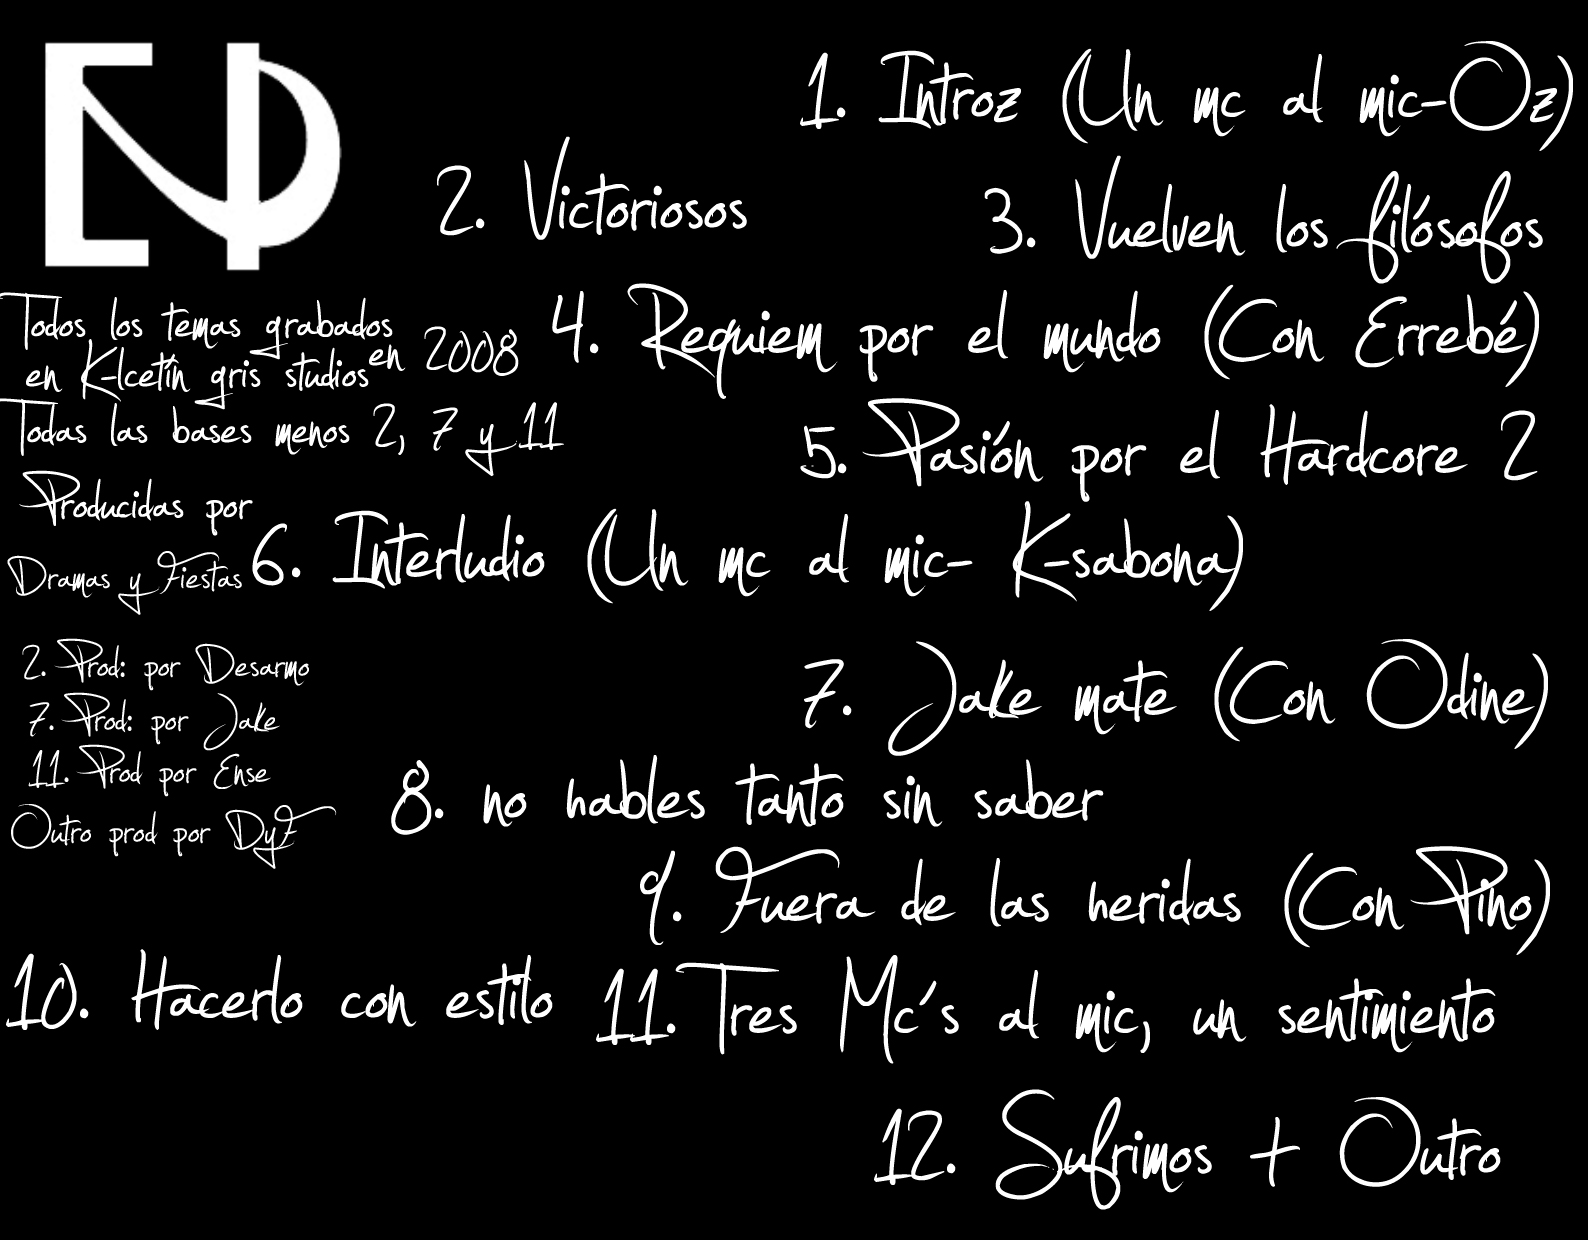 1. Introz (Un mc al mic-Oz)
2. Victoriosos
3. Vuelven los filósofos
4. Requiem por el mundo (Con Errebé)
5. Pasión por el Hardcore 2
6. Interludio (Un mc al mic- K-sabona)
7. Jake mate (Con Odine)
8. no hables tanto sin saber
9. Fuera de las heridas (Con Pino)
10. Hacerlo con estilo
11. Tres Mc's al mic, un sentimiento
12. Sufrimos + Outro
Todos los temas grabados
en K-lcetín gris studios en 2008
Todas las bases menos 2, 7 y 11
Producidas por
Dramas y Fiestas
2. Prod: por Desarmo
7. Prod: por Jake
11. Prod por Ense
Outro prod por DyF